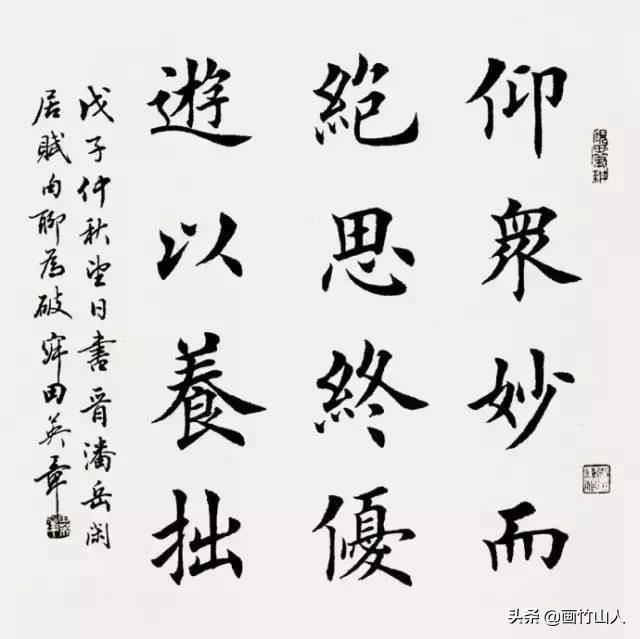 仰衆妙而
絕思終優
遊以養拙
戊子仲秋望日書晋潘岳闲
居賦句聊為破寂田英章
头条 @画竹山人